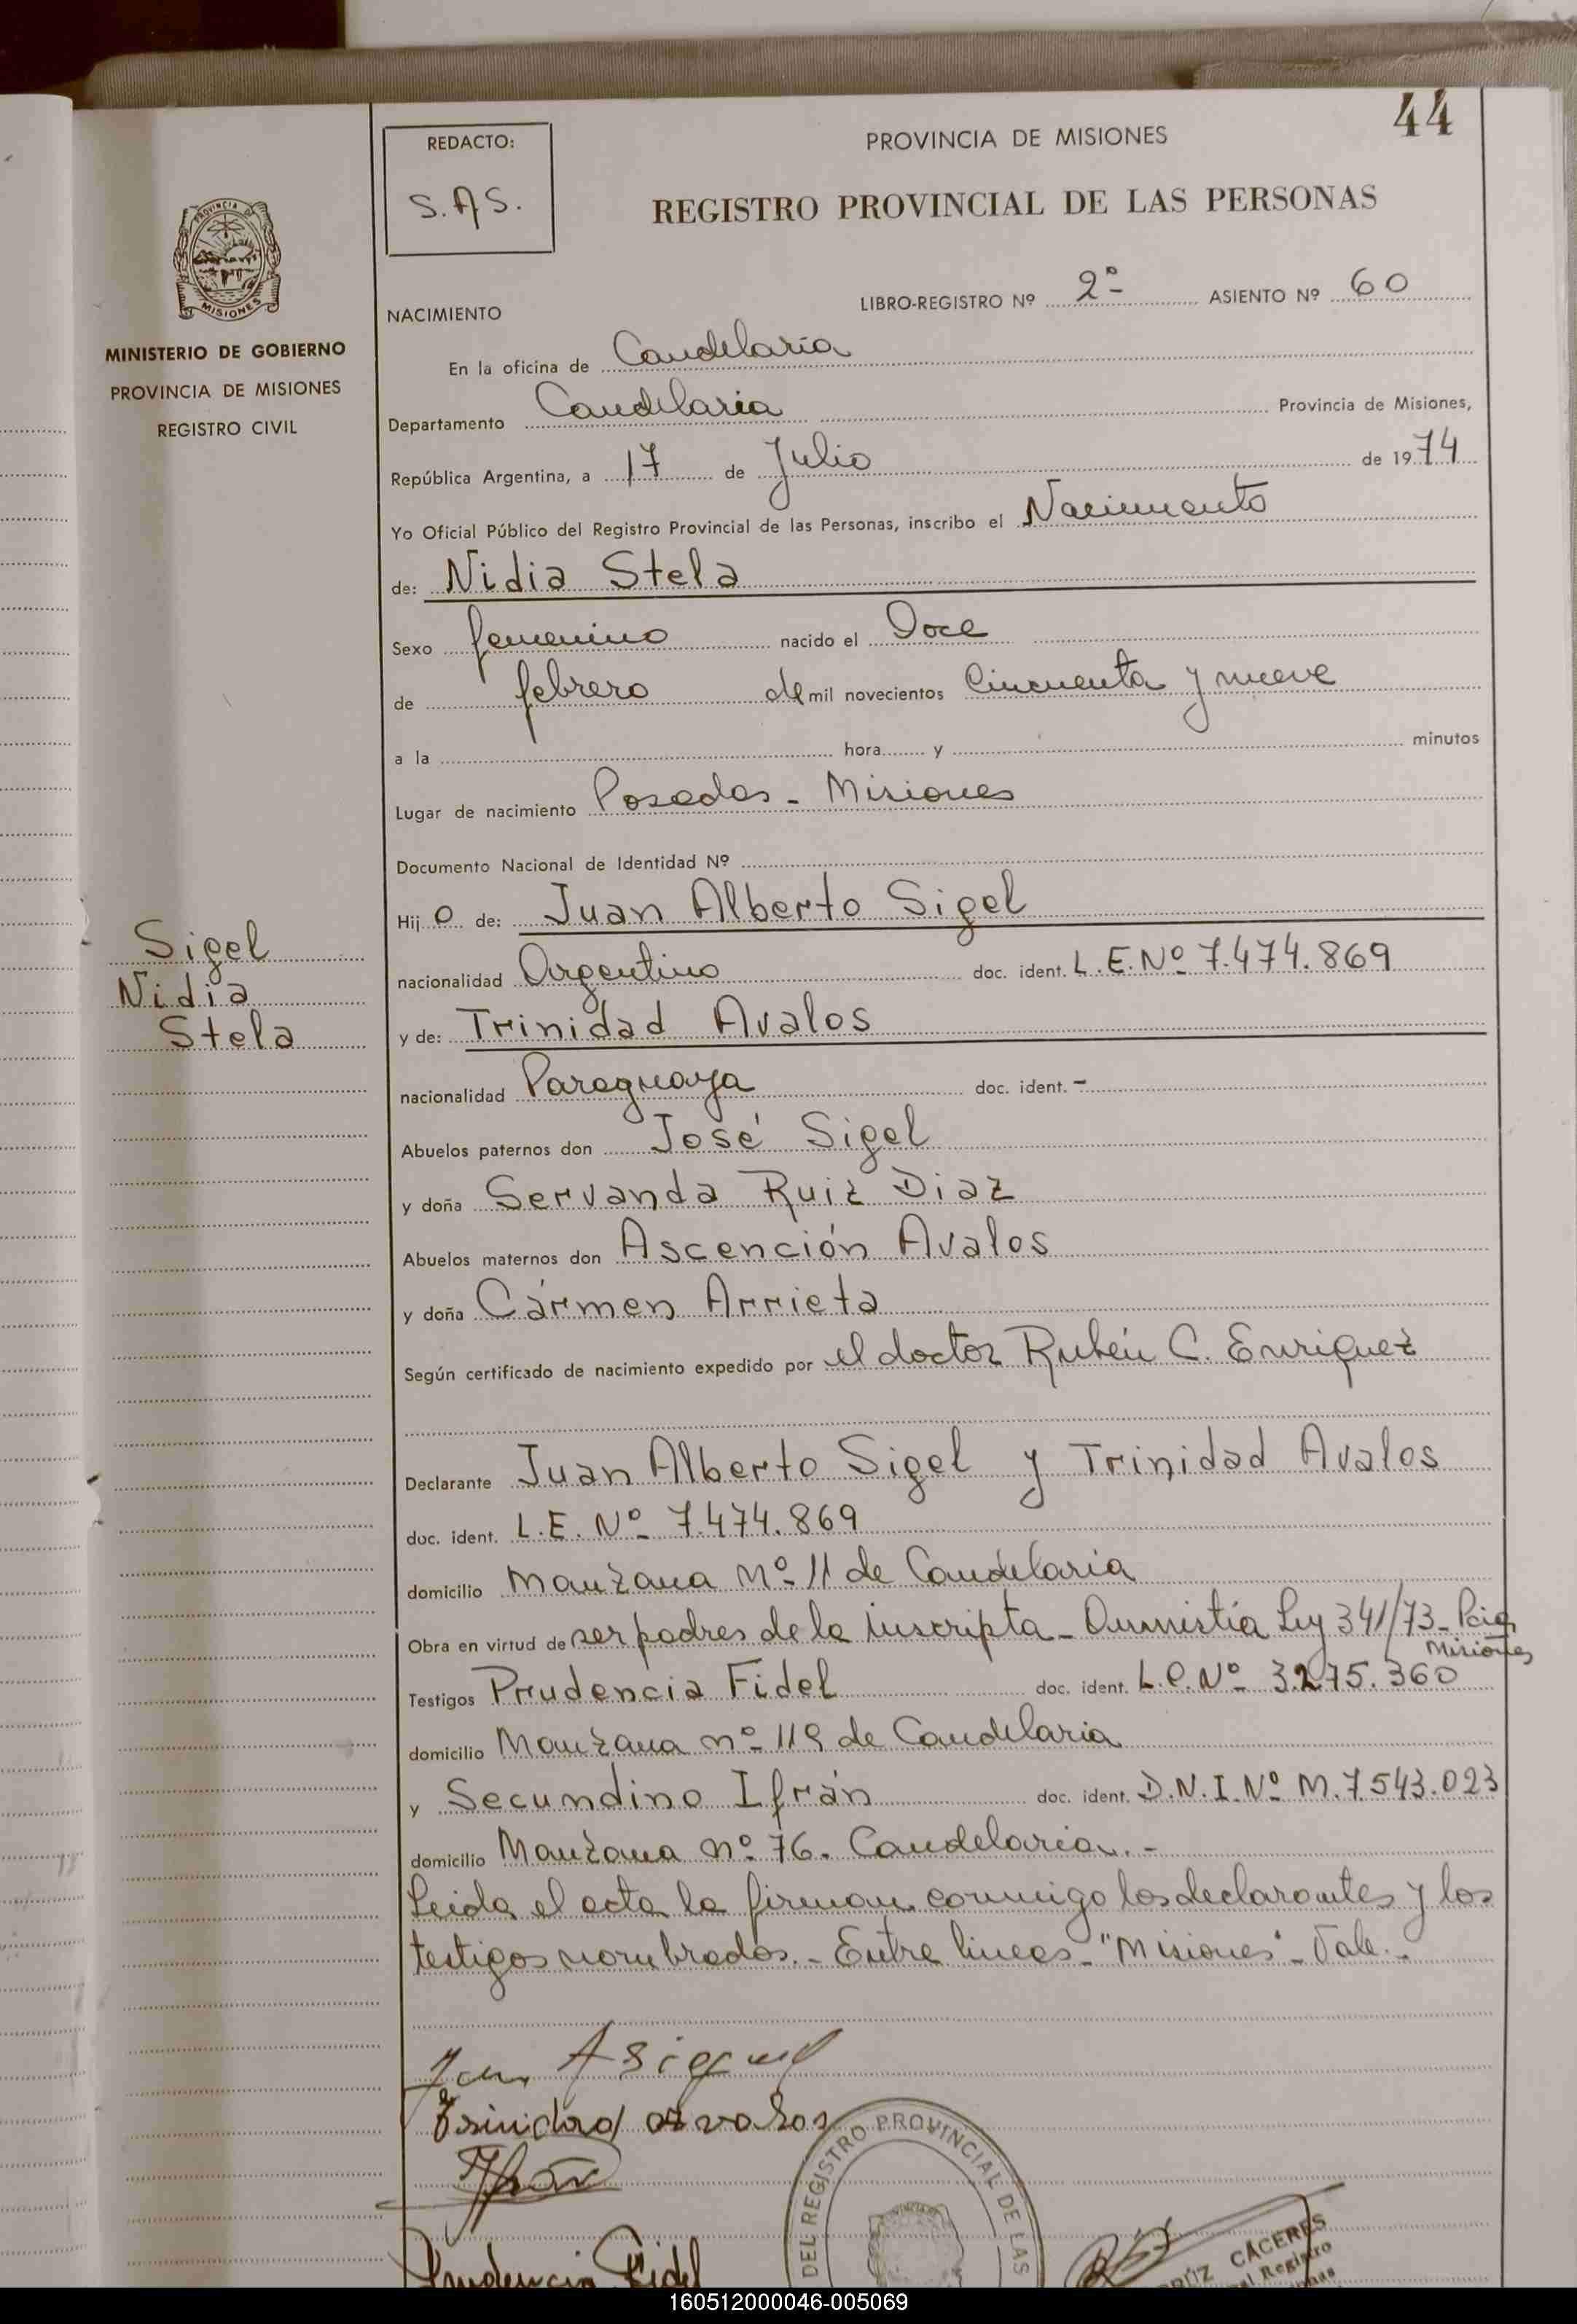 44
REDACTO:
S.A.S.
PROVINCIA DE MISIONES
REGISTRO PROVINCIAL DE LAS PERSONAS
PROVINCIA DE
MISIONES
MINISTERIO DE GOBIERNO
PROVINCIA DE MISIONES
REGISTRO CIVIL
NACIMIENTO LIBRO-REGISTRO Nº 2º ASIENTO Nº 60
En la oficina de Candelaria
Departamento Candelaria Provincia de Misiones,
República Argentina, a 17 de Julio de 1974
Yo Oficial Público del Registro Provincial de las Personas, inscribo el Nacimiento
de: Nidia Stela
Sexo femenino nacido el Doce
de febrero de mil novecientos Cincuenta y nueve
a la hora y minutos
Lugar de nacimiento Posadas - Misiones
Documento Nacional de Identidad Nº
Hij o de: Juan Alberto Sigel
nacionalidad Argentino doc. ident. L.E. Nº 7.474.869
y de: Trinidad Avalos
nacionalidad Paraguaya doc. ident. -
Abuelos paternos don José Sigel
y doña Servanda Ruiz Diaz
Abuelos maternos don Ascención Avalos
y doña Cármen Arrieta
Según certificado de nacimiento expedido por el doctor Rubén C. Enriquez
Declarante Juan Alberto Sigel y Trinidad Avalos
doc. ident. L.E. Nº 7.474.869
domicilio Manzana nº 11 de Candelaria
Obra en virtud de ser padres de la inscripta - Ammistía Ley 341/73 - Pcia
Misiones
Testigos Prudencia Fidel doc. ident. L.C. Nº 3.275.360
domicilio Manzana nº 119 de Candelaria
y Secundino Ifrán doc. ident. D.N.I. Nº M.7.543.023
domicilio Manzana nº 76. Candelaria. -
Leida el acta la firman conmigo los declarantes y los
testigos nombrados. - Entre lineas - "Misiones" - Vale. -
Sigel
Nidia
Stela
Juan A Siguel
Trinidad avalos
Prudencia Fidel
DEL REGISTRO PROVINCIAL DE LAS
CÁCERES
Registro
160512000046-005069